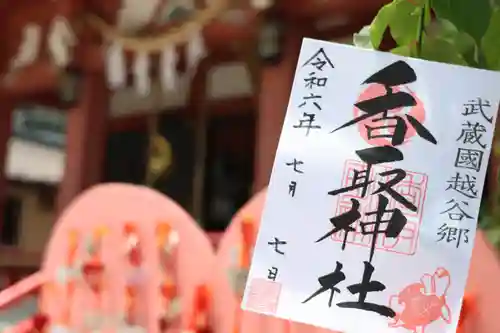 武蔵國越谷郷
香取神社
令和六年
七月
七日